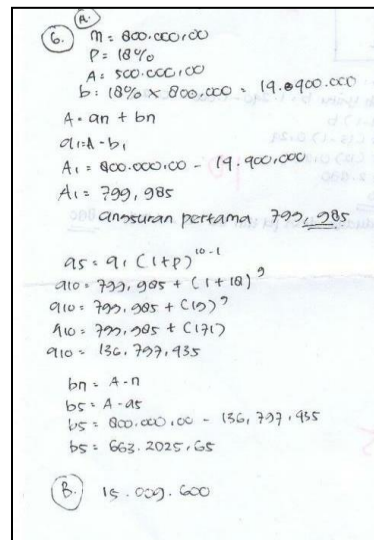 A.
6. M = 800.000,00
P = 18%
A = 500.000,00
b = 18% x 800,000 = 19.8900.000
A = an + bn
a1 = A - b1
A1 = 800.000,00 - 19.900,000
A1 = 799,985
angsuran pertama 799,985
a5 = a1 (1+p)^10-1
a10 = 799,985 + (1+18)^9
a10 = 799,985 + (19)^9
a10 = 799,985 + (171)
a10 = 136,797,435
bn = A - n
b5 = A - a5
b5 = 800.000,00 - 136,797,435
b5 = 663.2025,65
B. 15.009.600